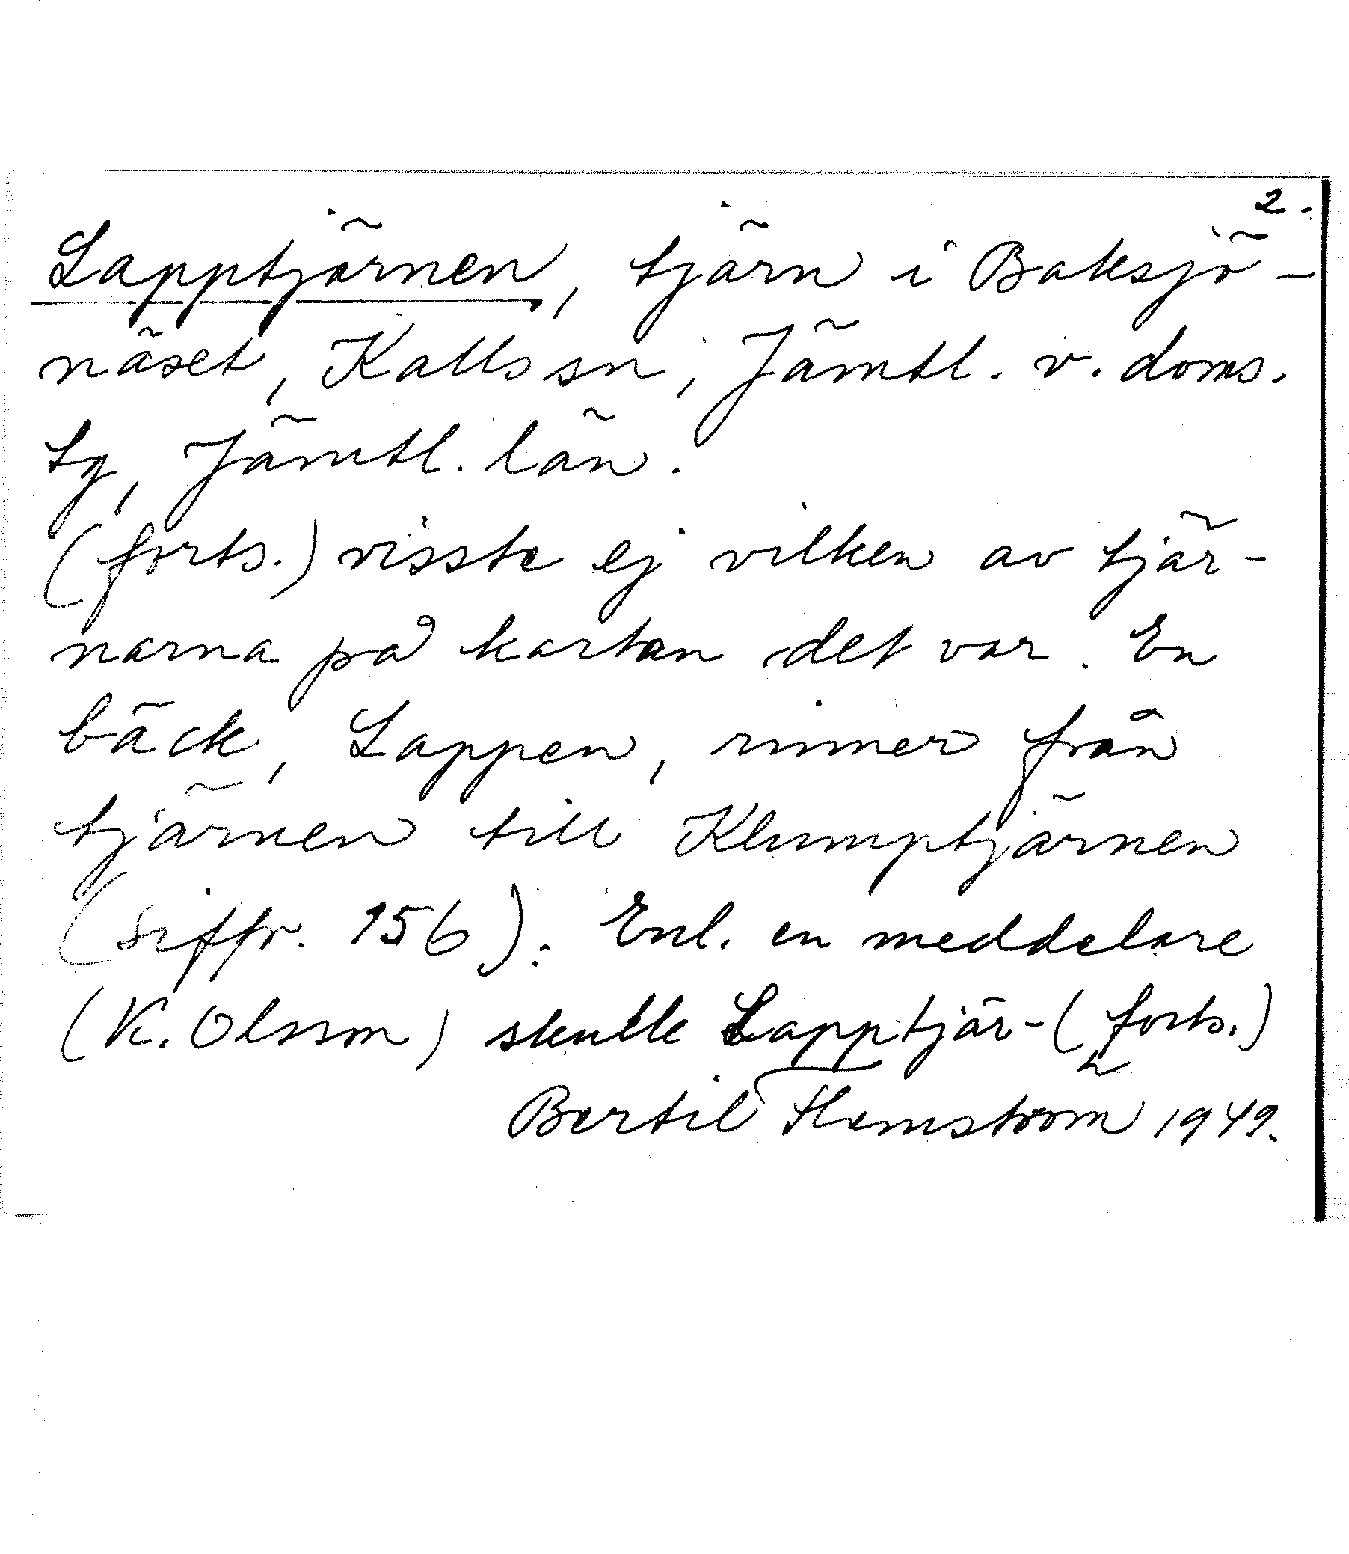 2.
Lapptjärnen, tjärn i Baksjö-
näset, Kalls sn, Jämtl. v. doms.
tg, Jämtl. län.
(forts.) visste ej vilken av tjär-
narna på kartan det var. En
bäck, Lappen, rinner från
tjärnen till Klumptjärnen
(siffr. 156). Enl. en meddelare
(K. Olsson) skulle Lapptjär- (forts.)
Bertil Hemström 1949.